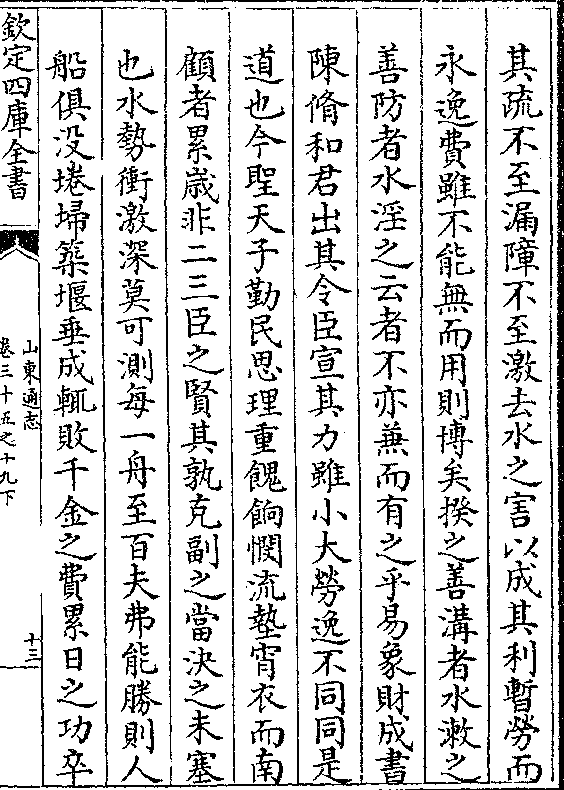 其疏不至漏障不至激去水之害以成其利暫勞而
永逸費雖不能無而用則博矣揆之善溝者水漱之
善防者水淫之云者不亦兼而有之乎易象財成書
陳脩和君出其令臣宣其力雖小大勞逸不同同是
道也今聖天子勤民思理重餽餉憫流墊宵衣而南
顧者累歲非二三臣之賢其孰克副之當決之未塞
也水勢衝激深莫可測每一舟至百夫弗能勝則人
船俱没埢埽築堰垂成輒敗千金之費累日之功卒
欽定四庫全書
山東通志
卷三十五之十九下
十三